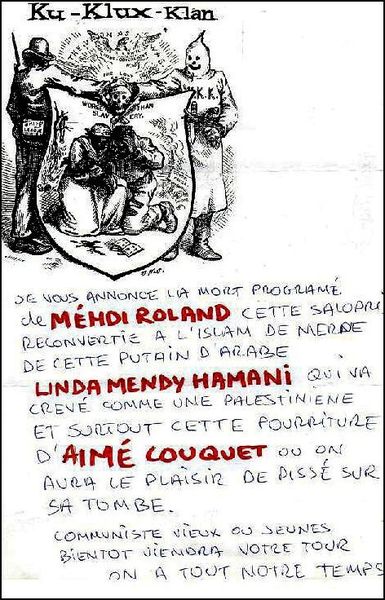 Ku-Klux-Klan
K.K.
THAN
SLAV ERY.
JE VOUS ANNONCE LIA MORT PROGRAMÉ
de MÉHDI ROLAND CETTE SALOPRI
RECONVERTIE A L'ISLAM DE MERDE
DE CETTE PUTAIN D'ARABE
LINDA MENDY HAMANI QUI VA
CREVÉ COMME UNE PALESTINIENE
ET SURTOUT CETTE POURRITURE
D'AIMÉ COUQUET OU ON
AURA LE PLAISIR DE PISSÉ SUR
SA TOMBE.
COMMUNISTE VIEUX OU JEUNES
BIENTOT VIENDRA VOTRE TOUR
ON A TOUT NOTRE TEMPS